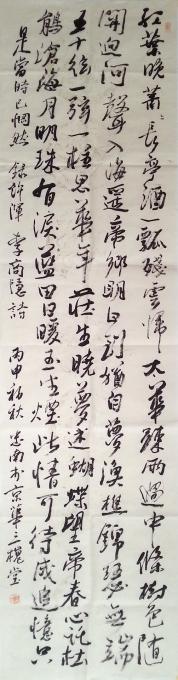 红葉晚萧〻長亭酒一瓢殘雲歸太華疎雨過中條樹色随
關迥河聲入海遥帝鄉明日到猶自夢漁樵錦瑟無端
五十弦一弦一柱思華年莊生曉夢迷蝴蝶望帝春心託杜
鵑滄海月明珠有淚藍田日暖玉生煙此情可待成追憶只
是當時已惘然 録許渾李商隱詩 丙申初秋 忠南於京華三槐堂